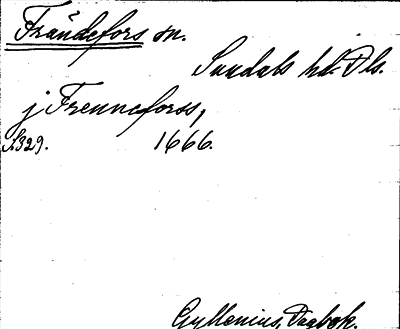 Frändefors sn.
Sundals hd. Dls.
j Frenneforss,
s.329. 1666.
Gyllenius, Dagbok.